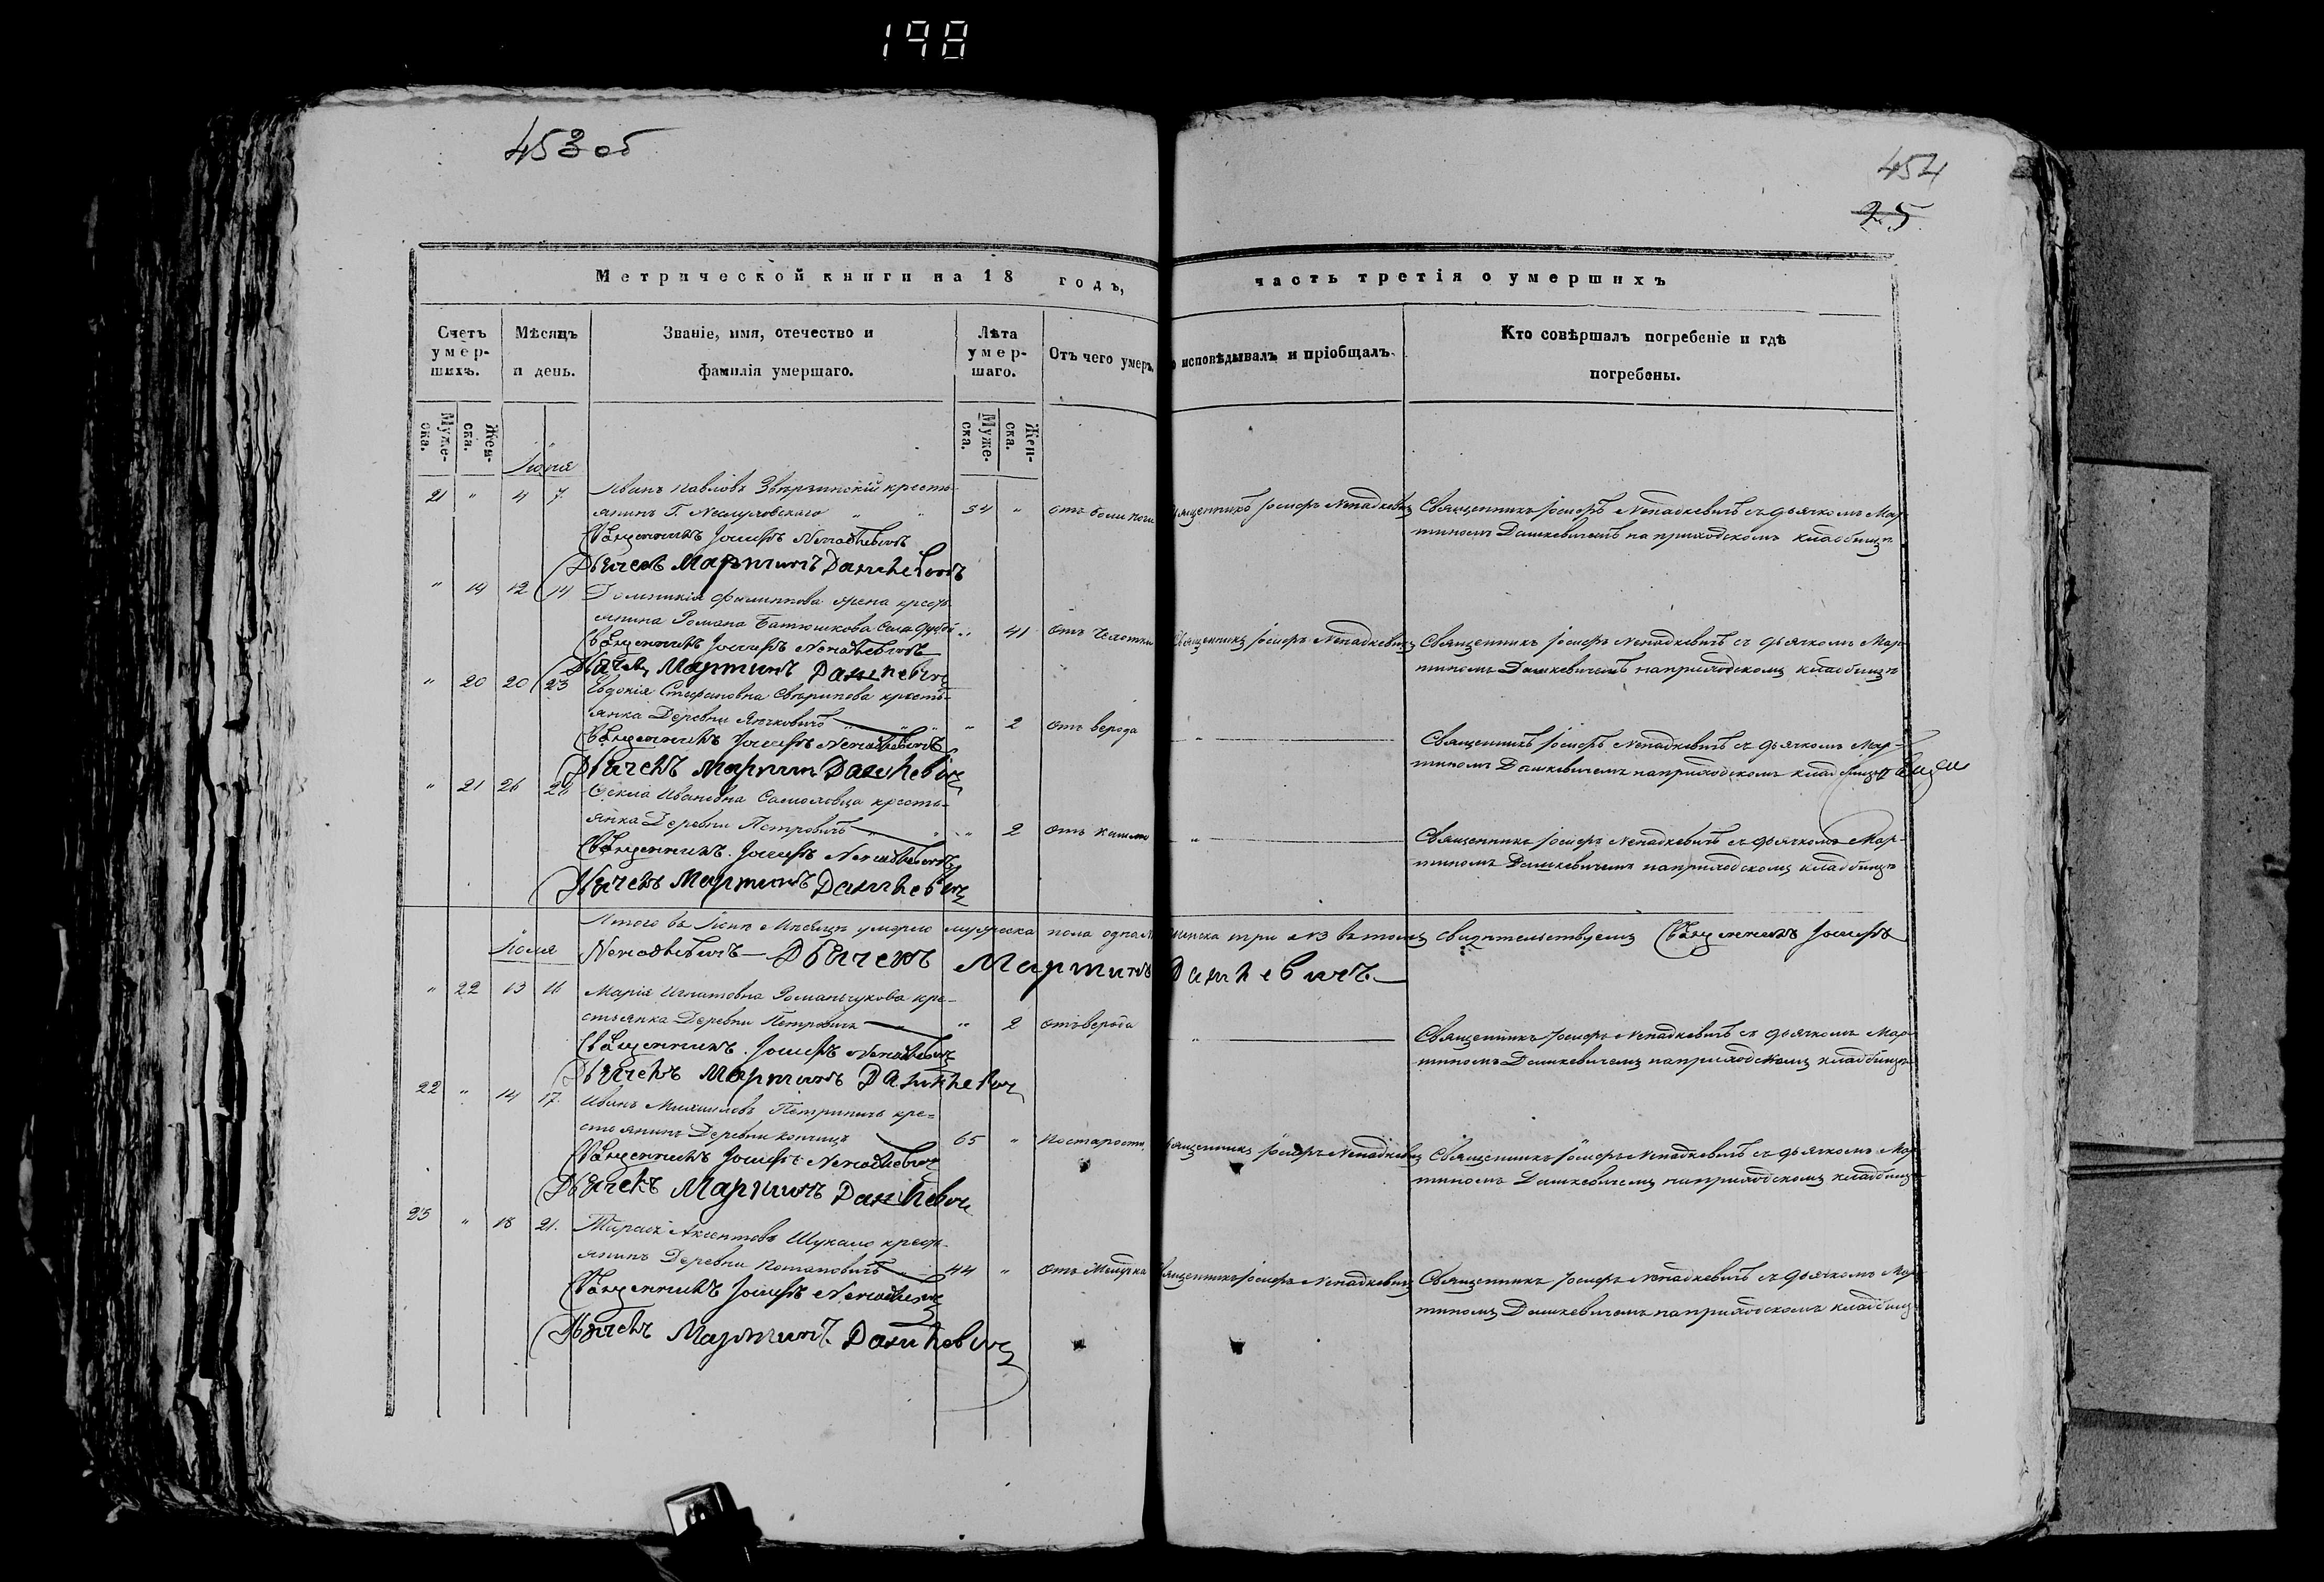 198
453 об
454
25
Метрической книги на 18 годъ, часть третія о умершихъ
Счетъ умершихъ.
Мѣсяцъ и день.
Званіе, имя, отечество и фамилія умершаго.
Лѣта умершаго.
Отъ чего умеръ.
о исповѣдывалъ и пріобщалъ.
Кто совѣршалъ погребеніе и гдѣ погребены.
Муже-ска.
Жен-ска.
Муже-ска.
Жен-ска.
Іюня
21 " 4 7. Иванъ Павловъ Звѣрзинскій кресть-
янинъ Г. 54 " отъ боли Священникъ Іосифъ Ненадкевичъ Священникъ Іосифъ Ненадкевичъ съ дьячкомъ Мар-
тиномъ Дашкевичемъ на приходскомъ кладбищѣ
Священникъ Іосифъ Ненадкевичъ
Дьячекъ Мартинъ Дашкевичъ
" 19 12 14 Филиппова жена кресть-
янина Романа Батюшкова " 41 отъ Чехотки Священникъ Іосифъ Ненадкевичъ Священникъ Іосифъ Ненадкевичъ съ дьячкомъ Мар-
тиномъ Дашкевичемъ на приходскомъ кладбищѣ
Священникъ Іосифъ Ненадкевичъ
Дьячекъ Мартинъ Дашкевичъ
" 20 20 23 Евдокія Стефановна кресть-
янка Деревни " 2 отъ верода " Священникъ Іосифъ Ненадкевичъ съ дьячкомъ Мар-
тиномъ Дашкевичемъ на приходскомъ кладбищѣ
Священникъ Іосифъ Ненадкевичъ
Дьячекъ Мартинъ Дашкевичъ
" 21 26 Ѳекла Ивановна кресть-
янка Деревни Петровичъ " 2 отъ кашлю " Священникъ Іосифъ Ненадкевичъ съ дьячкомъ Мар-
тиномъ Дашкевичемъ на приходскомъ кладбищѣ
Священникъ Іосифъ Ненадкевичъ
Дьячекъ Мартинъ Дашкевичъ
Итого въ Іюнѣ Мѣсяцѣ умерло мужеска пола одна женска три въ томъ свидѣтельствуемъ Священникъ Іосифъ
Ненадкевичъ Дьячекъ Мартинъ Дашкевичъ
Іюля
" 22 13 16 Марія Игнатовна Романчукова кре-
стьянка Деревни Петровичъ " 2 отъ верода " Священникъ Іосифъ Ненадкевичъ съ дьячкомъ Мар-
тиномъ Дашкевичемъ на приходскомъ кладбищѣ
Священникъ Іосифъ Ненадкевичъ
Дьячекъ Мартинъ Дашкевичъ
22 " 14 17. Иванъ Михаиловъ кре-
стьянинъ Деревни 65 " по старости Священникъ Іосифъ Ненадкевичъ Священникъ Іосифъ Ненадкевичъ съ дьячкомъ Мар-
тиномъ Дашкевичемъ на приходскомъ кладбищѣ
Священникъ Іосифъ Ненадкевичъ
Дьячекъ Мартинъ Дашкевичъ
23 " 18 21. Тарасъ Аксентовъ Шукало кресть-
янинъ Деревни Потаповичъ 44 " отъ Священникъ Іосифъ Ненадкевичъ Священникъ Іосифъ Ненадкевичъ съ дьячкомъ Мар-
тиномъ Дашкевичемъ на приходскомъ кладбищѣ
Священникъ Іосифъ Ненадкевичъ
Дьячекъ Мартинъ Дашкевичъ